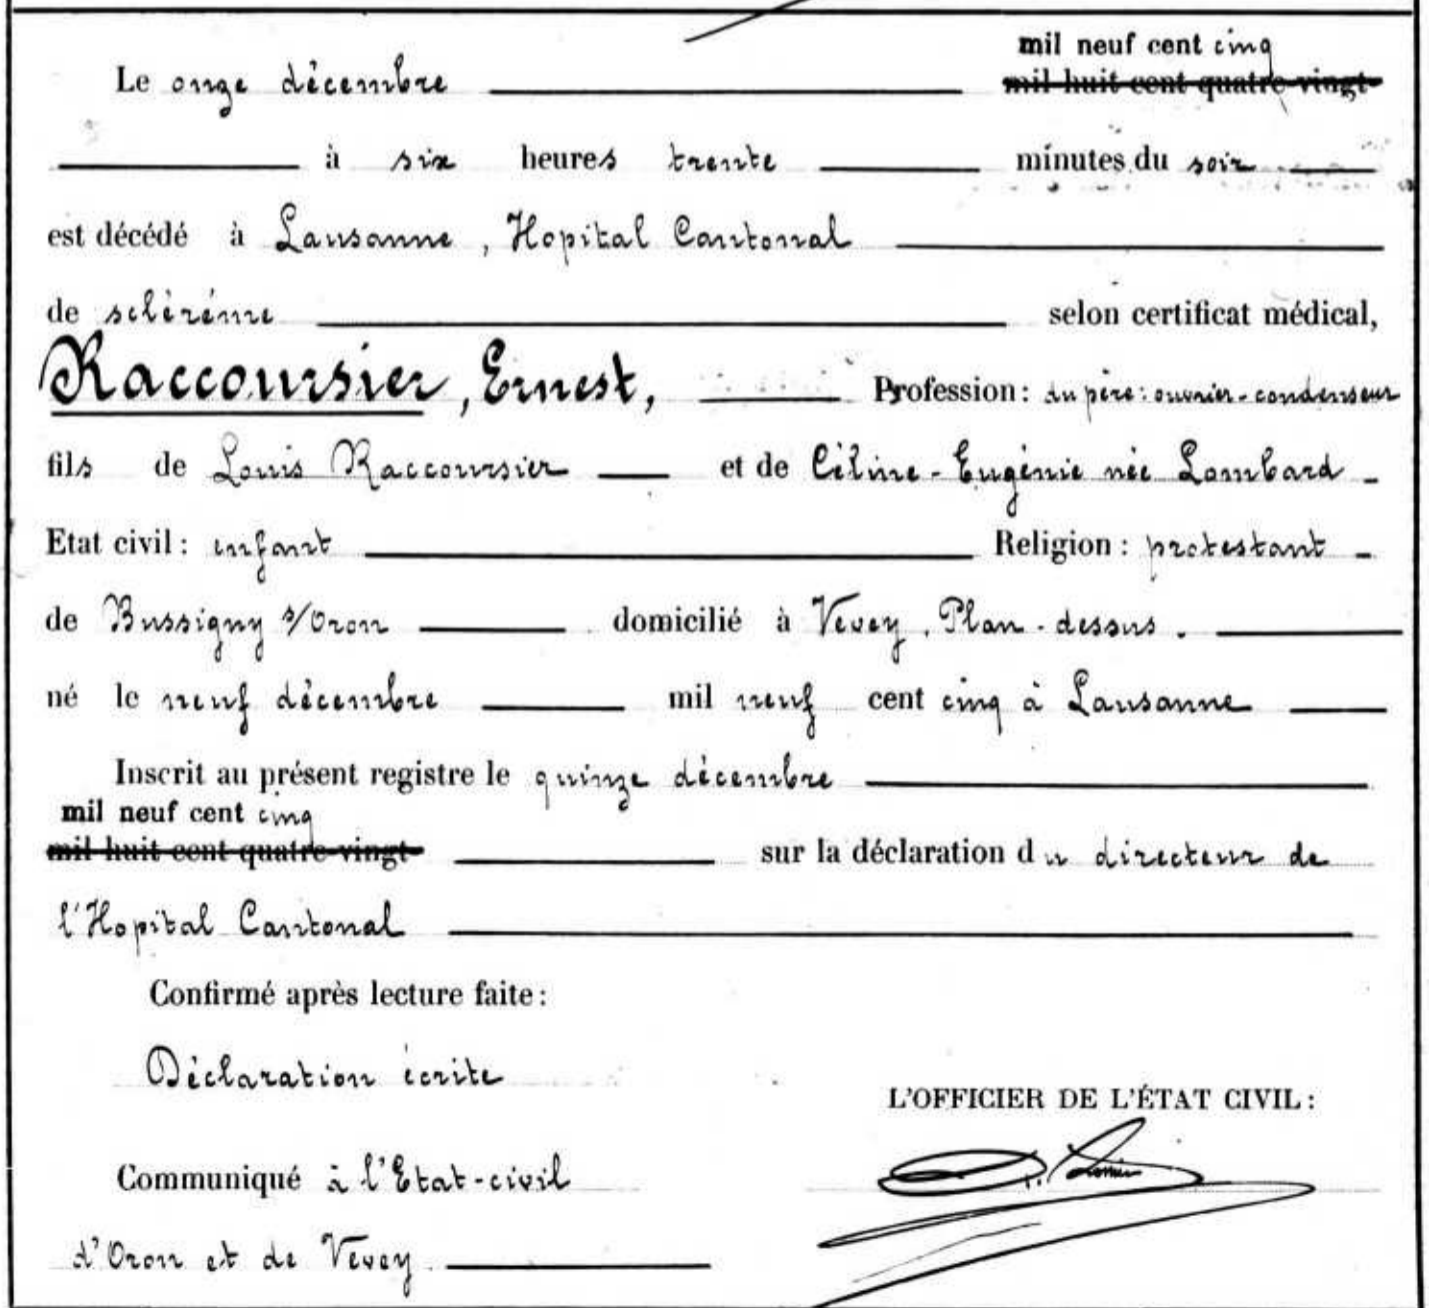 mil neuf cent cinq
Le onze décembre mil huit cent quatre-vingt
à six heures trente minutes du soir
est décédé à Lausanne, Hopital Cantonal
de sclérème selon certificat médical,
Raccoursier, Ernest, Profession: du père: ouvrier-condenseur
fils de Louis Raccoursier et de Céline-Eugénie née Lombard
Etat civil: enfant Religion: protestant
de Bussigny s/Oron domicilié à Vevey, Plan-dessus.
né le neuf décembre mil neuf cent cinq à Lausanne
Inscrit au présent registre le quinze décembre
mil neuf cent cinq
mil huit cent quatre-vingt sur la déclaration du directeur de
l'Hopital Cantonal
Confirmé après lecture faite:
Déclaration écrite
L'OFFICIER DE L'ÉTAT CIVIL:
Communiqué à l'Etat-civil
d'Oron et de Vevey